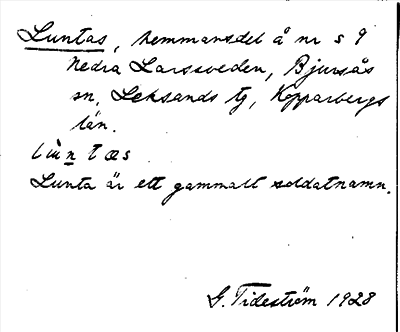 Luntas, hemmansdel å nr s 9
Nedra Larssveden, Bjursås
sn, Leksands tg, Kopparbergs
län.
lùntæs
Lunta är ett gammalt soldatnamn.
G. Tideström 1928